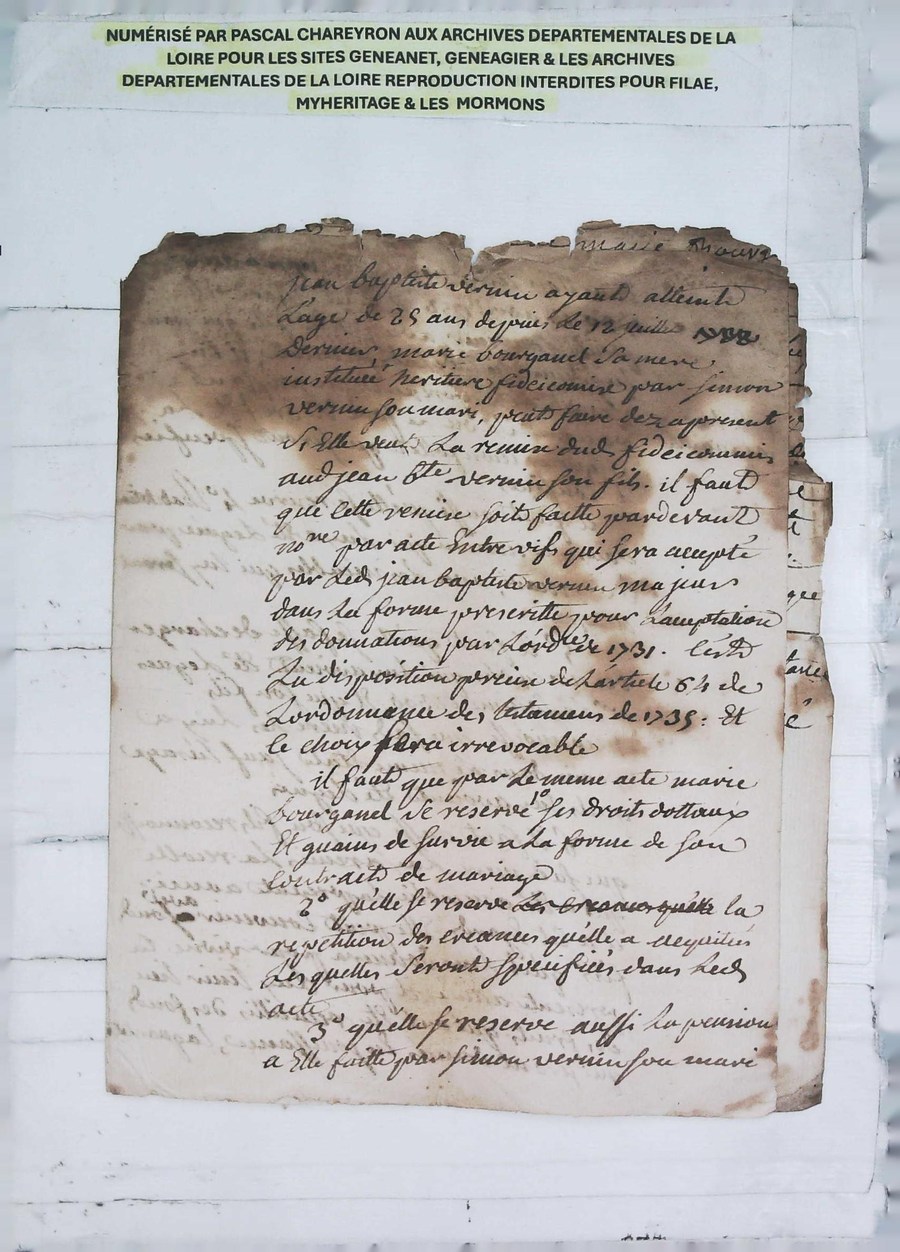 NUMÉRISÉ PAR PASCAL CHAREYRON AUX ARCHIVES DEPARTEMENTALES DE LA
LOIRE POUR LES SITES GENEANET, GENEAGIER & LES ARCHIVES
DEPARTEMENTALES DE LA LOIRE REPRODUCTION INTERDITES POUR FILAE,
MYHERITAGE & LES MORMONS
marie
jean baptiste vernin ayant atteint
L'age de 25 ans depuis Le 12 juillet 1788
Dernier, marie bourganel Sa mere
instituée heritiere fideicomise par Simon
vernin son mari, peut faire dez apresent
Si Elle veut La remise dud fideicommis
aud jean Bte vernin son fils. il faut
que cette remise soit faitte pardevant
nore par acte Entre vifs qui sera accepté
par Led jean baptiste vernin majeur
dans La forme prescritte pour L'aceptation
des donnations par L'ordce de 1731. C'est
La disposition precise de L'article 64 de
Lordonnance des testamens de 1735. Et
le choix sera irrevocable
il faut que par Le meme acte marie
bourganel se reserve 1º ses droits dottaux
Et guains de survie a La forme de son
contract de mariage
2º qu'elle se reserve Les creances qu'elle la
repetition des creances qu'elle a acquittés
Lesquelles Seront Specifiées dans Led
acte
3º qu'elle se reserve aussi La pension
a Elle faitte par Simon vernin son mari